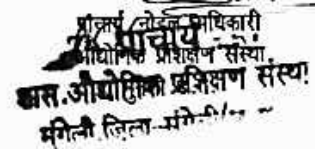 प्राचार्य /नोडल अधिकारी
प्राचार्य
औद्योगिक प्रशिक्षण संस्था
शास. औद्योगिक प्रशिक्षण संस्था
मुंगेली जिला-मुंगेली